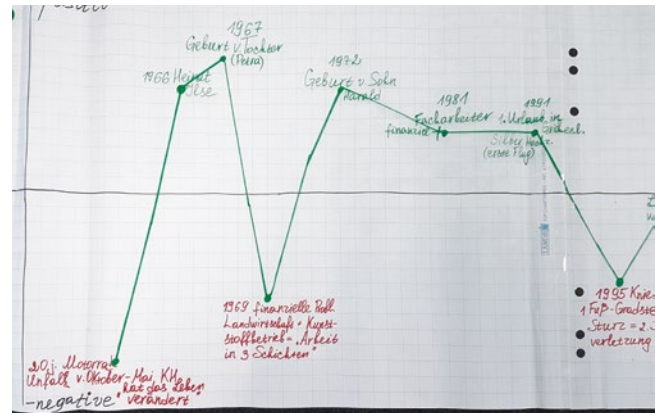 positiv
1967
Geburt v. Tochter
(Petra)
1966 Heirat
Ilse
1972
Geburt v. Sohn
Harald
1981
Facharbeiter
finanziell +
1991
1. Urlaub in
Silber
(erste Flug)
1969 finanzielle Probl.
Landwirtschaft + Kunst-
stoffbetrieb = "Arbeit
in 3 Schichten"
1995 Knie
1 Fuß-
Sturz = 2.
verletzung
20 j. Motorrad
Unfall v. Oktober-Mai, KH
"hat das Leben
verändert"
-negative